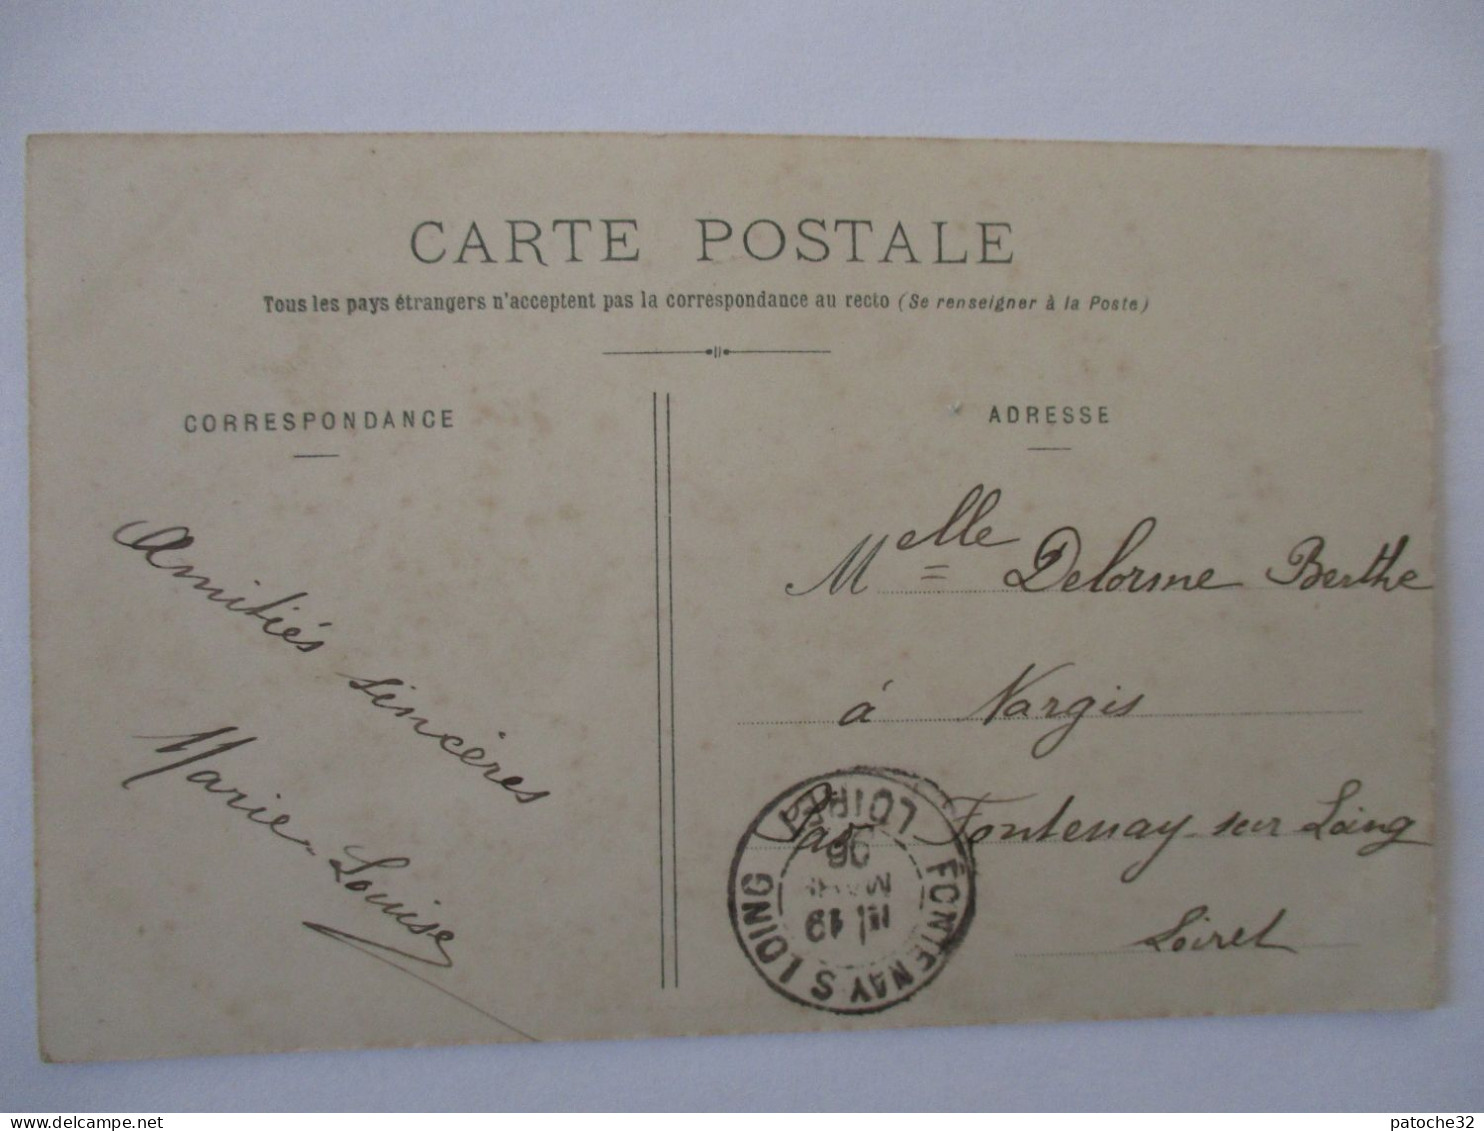 CARTE POSTALE
Tous les pays étrangers n'acceptent pas la correspondance au recto (Se renseigner à la Poste)
CORRESPONDANCE
Amitiés sincères
Marie-Louise
ADRESSE
Melle Delorme Berthe
à Nargis
Par Fontenay sur Loing
Loiret
FONTENAY S LOING
LOIRET
19
06
patoche32